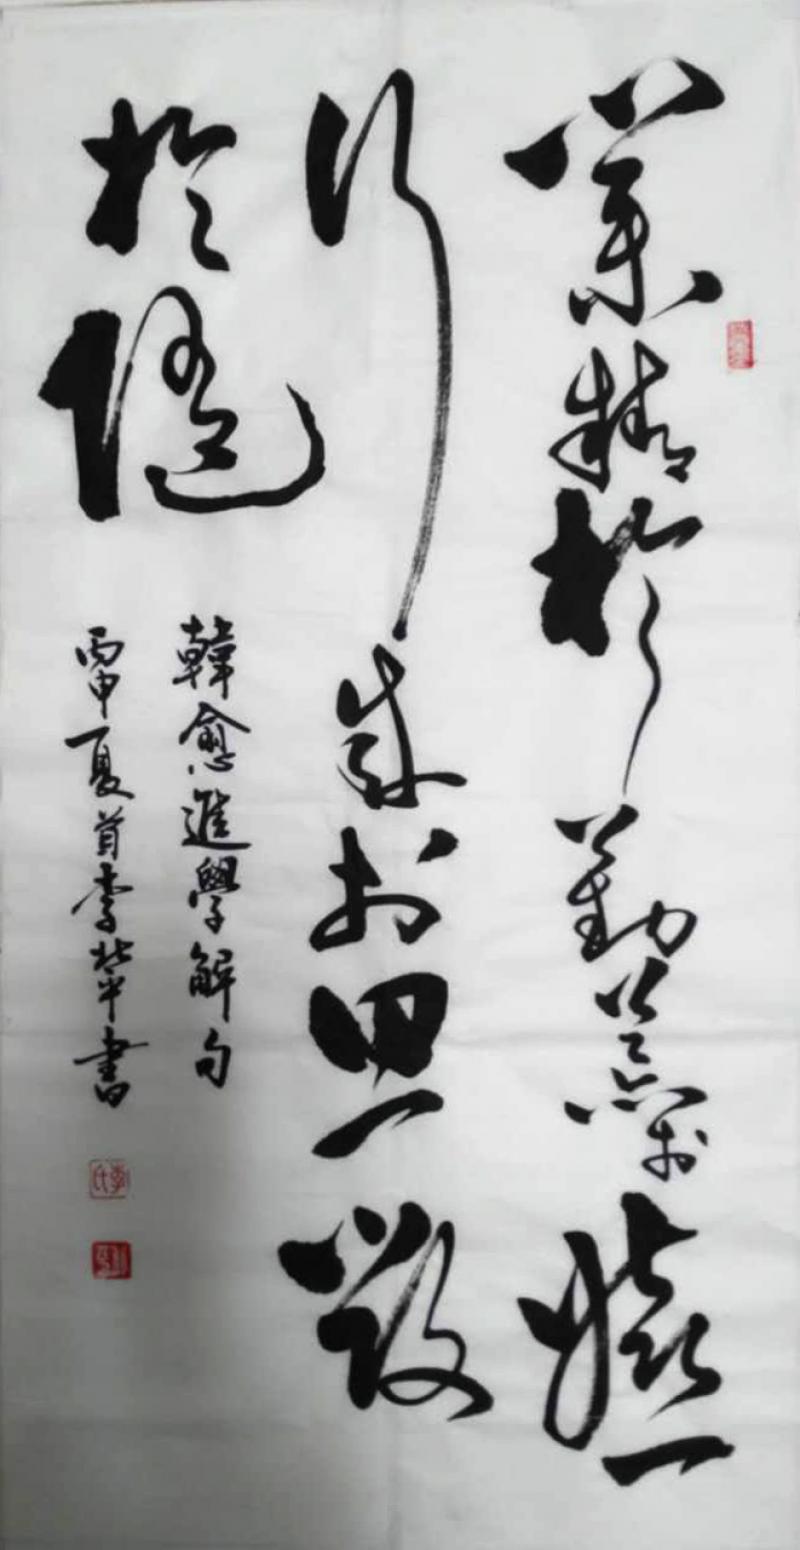 業精於勤荒於嬉
行成於思毀
於隨
韓愈進學解句
丙申夏首李華書
李氏